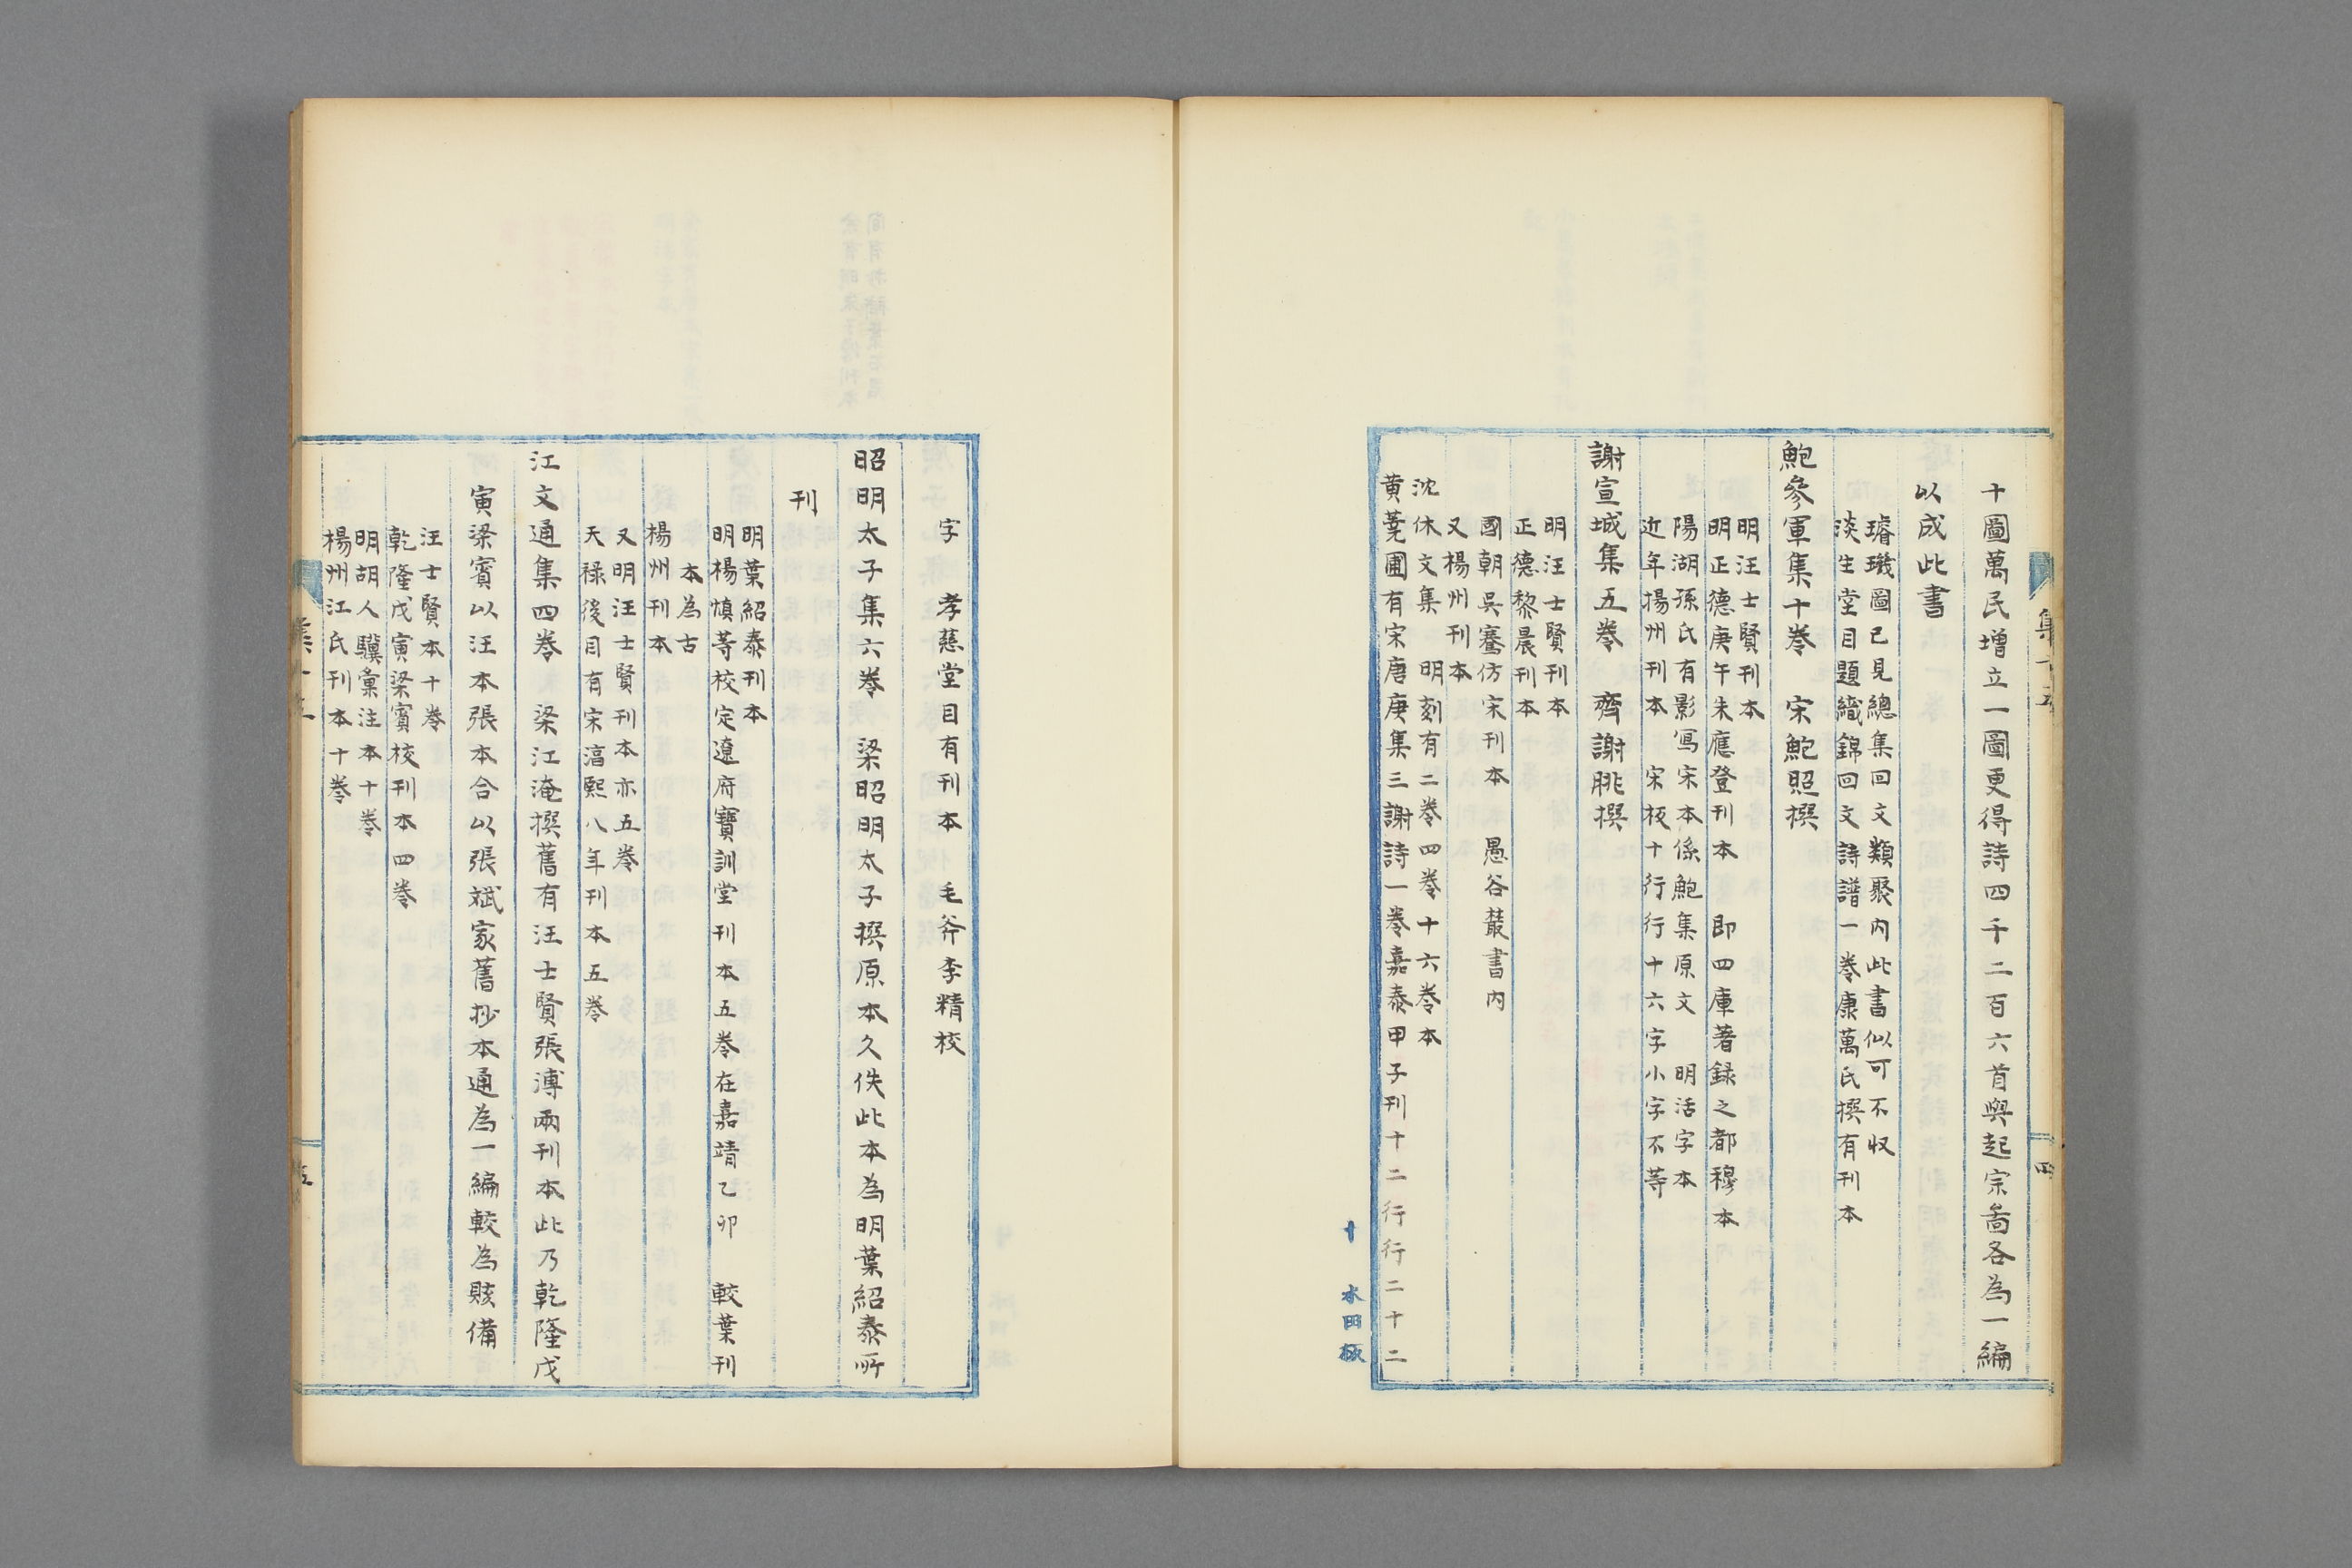 十圖萬民增立一圖更得詩四千二百六首與起宗啚各為一編
以成此書
璿璣圖已見總集回文類聚内此書似可不収
淡生堂目題織錦回文詩譜一卷康萬民撰有刊本
鮑參軍集十卷　宋鮑照撰
明汪士賢刊本
明正德庚午朱應登刊本　即四庫著録之都穆本
陽湖孫氏有影寫宋本係鮑集原文　明活字本
近年揚州刊本　宋板十行行十六字小字不等
謝宣城集五卷　齊謝朓撰
明汪士賢刊本
正德黎晨刊本
國朝吳騫仿宋刊本　愚谷叢書内
又楊州刊本
沈休文集　明刻有二卷四卷十六卷本
黄蕘圃有宋唐庚集三謝詩一卷嘉泰甲子刊十二行行二十二
十　木田板
字　孝慈堂目有刊本　毛斧季精校
昭明太子集六卷　梁昭明太子撰原本久佚此本為明葉紹泰所
刊
明葉紹泰刊本
明楊慎等校定遼府寶訓堂刊本五卷在嘉靖乙卯　較葉刊
本為古
楊州刊本
又明汪士賢刊本亦五卷
天禄後目有宋湻熙八年刊本五卷
江文通集四卷　梁江淹撰舊有汪士賢張溥兩刊本此乃乾隆戊
寅梁賓以汪本張本合以張斌家舊抄本通為一編較為賅備
汪士賢本十卷
乾隆戊寅梁賓校刊本四卷
明胡人驥彙注本十卷
楊州江氏刊本十卷